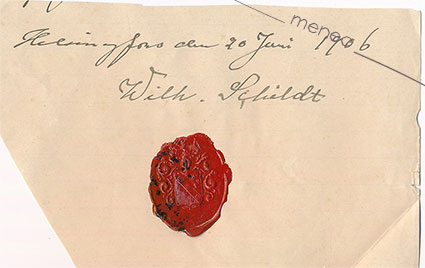 Helsingfors den 20 Juni 1906
Wilh. Schildt